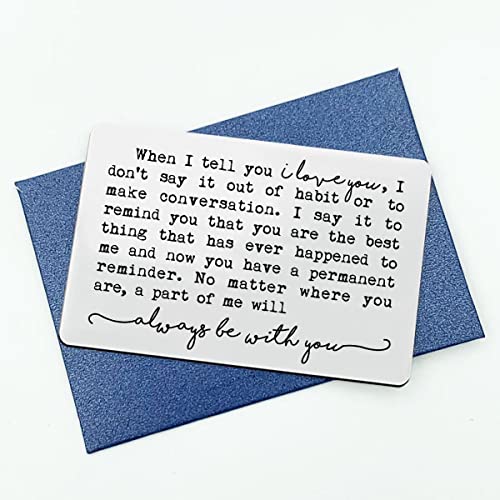 When I tell you i love you, I
don't say it out of habit or to
make conversation. I say it to
remind you that you are the best
thing that has ever happened to
me and now you have a permanent
reminder. No matter where you
are, a part of me will
always be with you